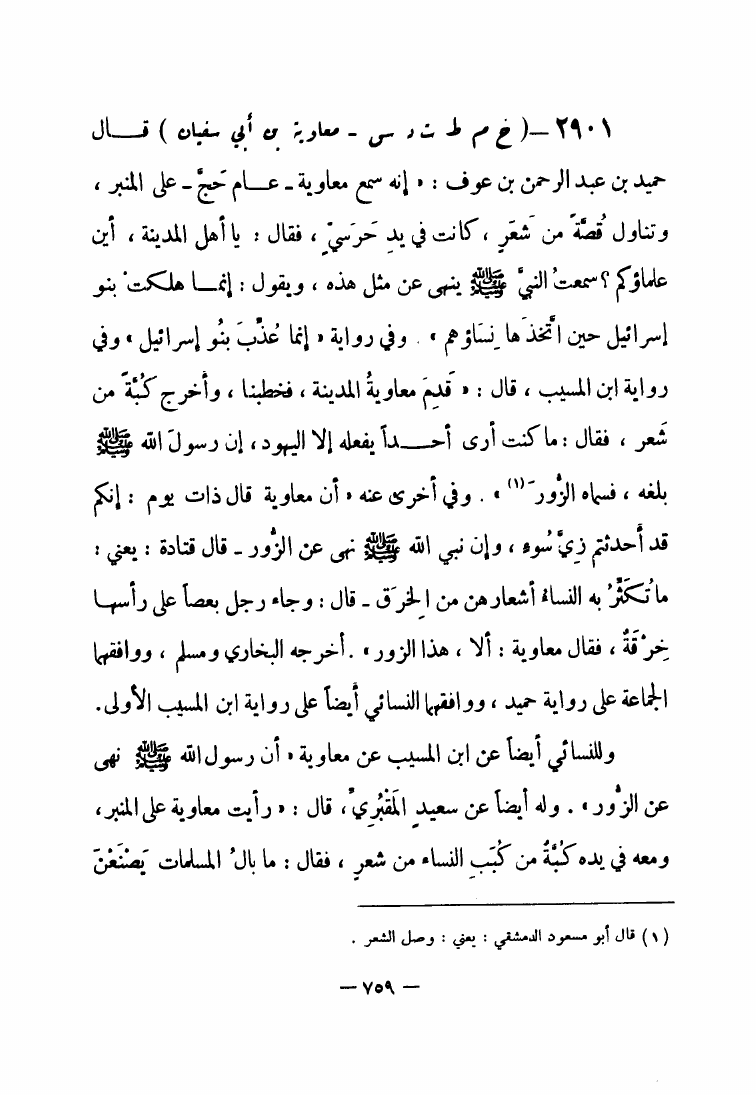 ٢٩٠١ – ( خ م ط ت د س - معاوية بن أبي سفيان ) قــال
حميد بن عبد الرحمن بن عوف : « إنه سمع معاوية - عــام حَجَّ - على المنبر ،
وتناول قُصَّةً من شَعَرٍ ، كانت في يدِ حَرَسيّ ٍ ، فقال : يا أهل المدينة ، أين
علماؤكم ؟ سمعتُ النبيَّ ﷺ ينهى عن مثل هذه ، ويقول : إنمــا هلكتْ بنو
إسرائيل حين اتَّخَذَها نِسَاؤهم » . وفي رواية « إنما عُذِّبَ بنُو إسرائيل » وفي
رواية ابن المسيب ، قال : « قَدِمَ معاويةُ المدينة ، فخطبنا ، وأخرج كُبَّةً من
شَعر ، فقال : ما كنت أرى أحــداً يفعله إلا اليهود، إن رسولَ الله ﷺ
بلغه ، فسماه الزُّور (١) » . وفي أخرى عنه « أن معاوية قال ذات يوم : إنكم
قد أحدثتم زِيَّ سُوءٍ ، وإن نبي الله ﷺ نهى عن الزُّور - قال قتادة : يعني :
ما تُكَثِّرُ به النساءُ أشعارهن من الخِرَق - قال : وجاء رجل بعصاً على رأسهــا
خِرْقَةٌ ، فقال معاوية : ألا ، هذا الزور » . أخرجه البخاري ومسلم ، ووافقهما
الجماعة على رواية حميد ، ووافقهما النسائي أيضاً على رواية ابن المسيب الأولى.
وللنسائي أيضاً عن ابن المسيب عن معاوية « أن رسول الله ﷺ نهى
عن الزُّور » . وله أيضاً عن سعيدٍ المَقْبُرِيِّ ، قال : « رأيت معاوية على المنبر،
ومعه في يده كُبَّةٌ من كُبَبِ النساء من شعرٍ ، فقال : ما بالُ المسلمات يَصْنَعْنَ
(١) قال أبو مسعود الدمشقي : يعني : وصل الشعر .
– ٧٥٩ –